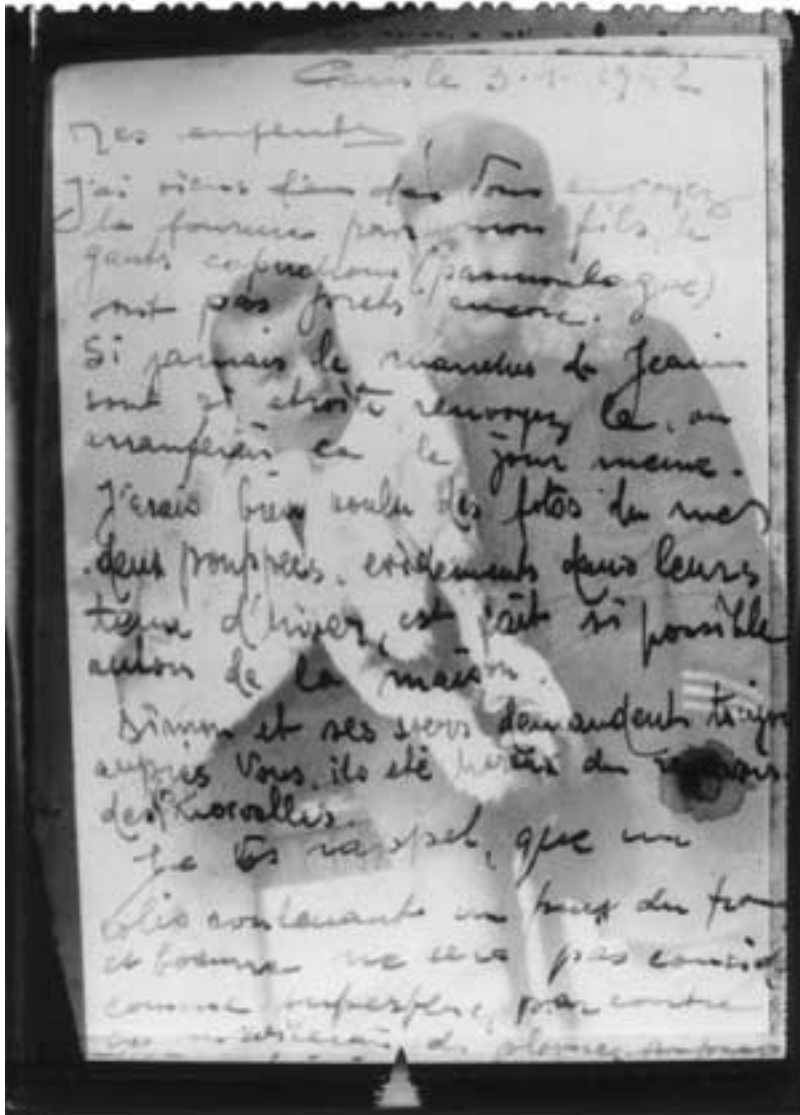 Paris le 3.1.1942
Mes enfents
J'ai bien des Vous envoyez
la fourrure pour mon fils, le
gants capuchons
pas prets encore.
Si jamais le manches de Jeanin
sont si etroits renvoyez la, on
arrangerais ca le jour meme.
J'erais bien voulu des fotos du mes
deux pouppees, evidements dans leurs
tenu d'hiver, est fait si possible
autour de la maison.
Simon et ses soers demandent toujour
aupres Vous, ils eté du
des
Je Vs rappel, que un
colis contenante un peux du from
et beurre ne sera pas consid
comme superflu, par contre
du